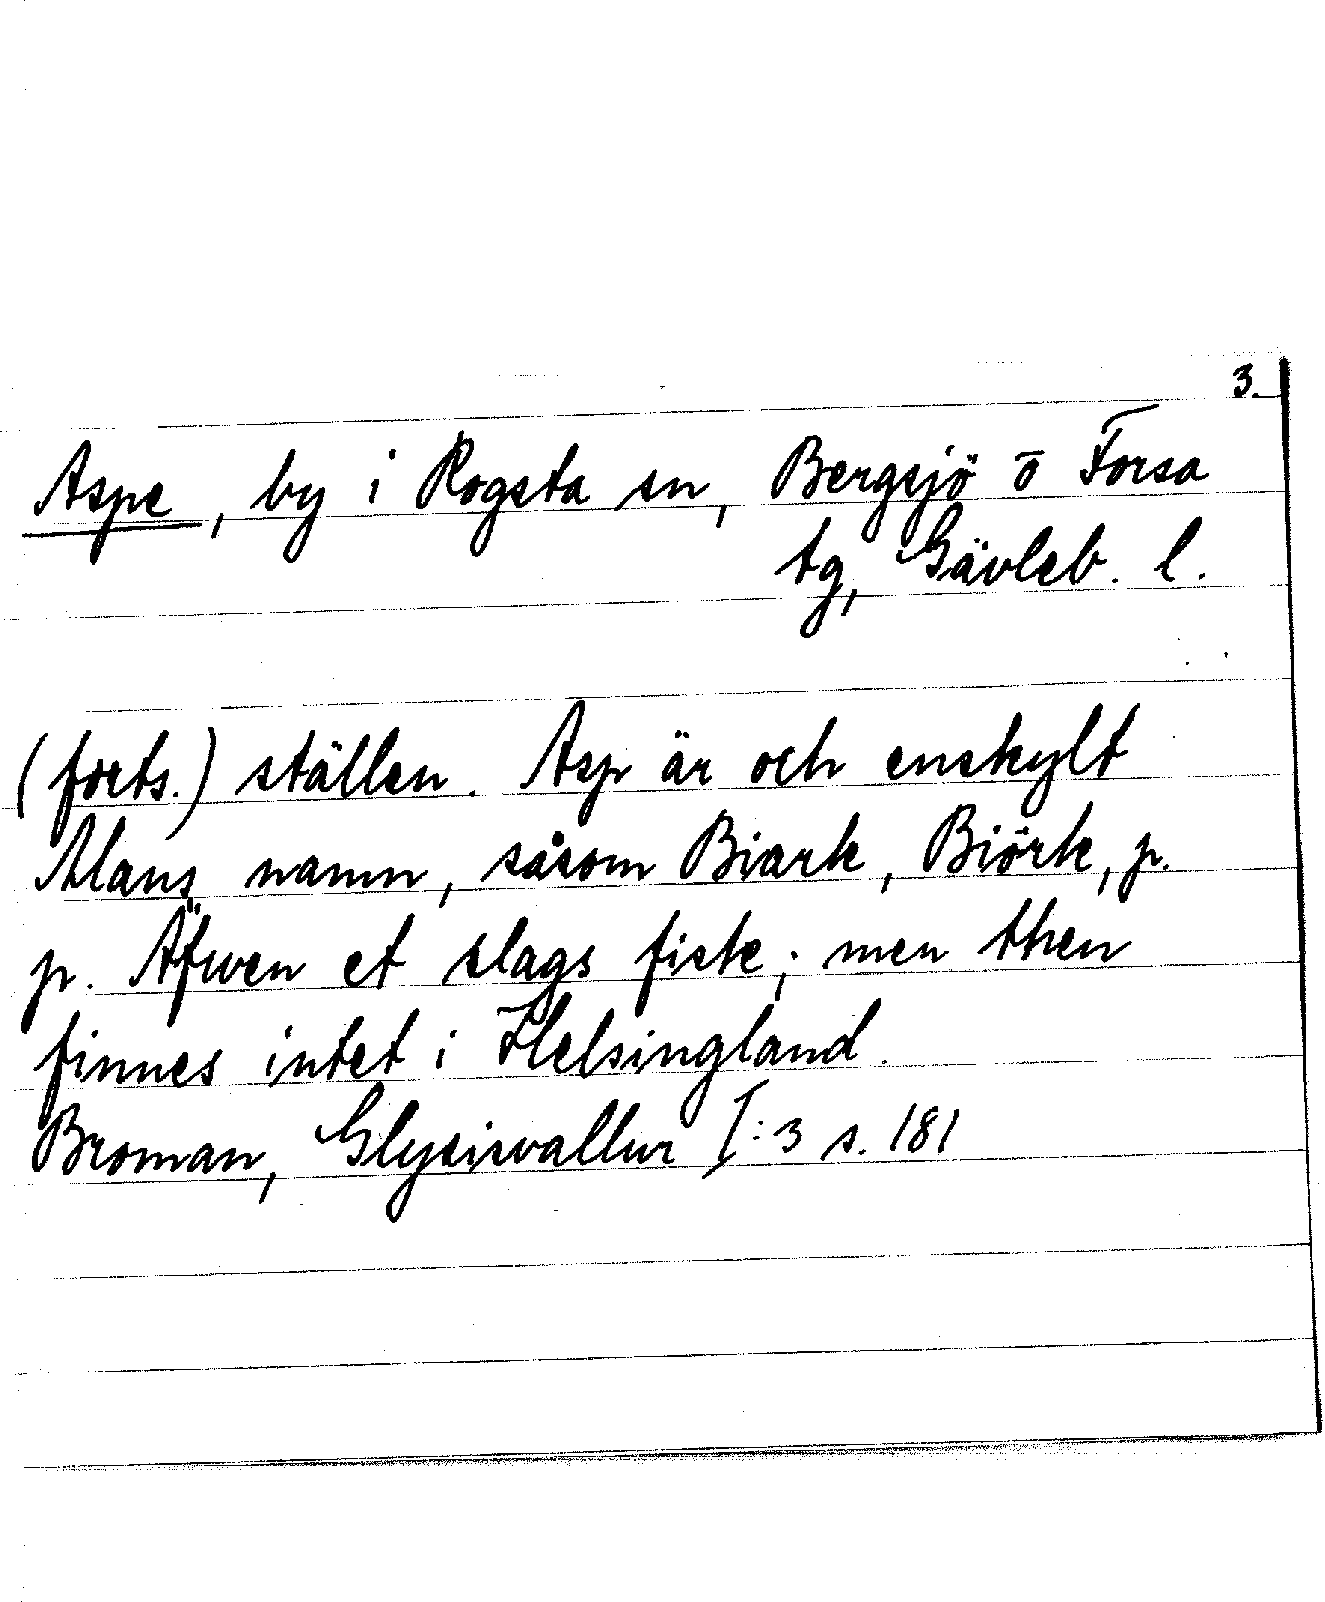 3.
Aspe, by i Rogsta sn, Bergsjö ō Forsa
tg, Gävleb. l.
(forts.) ställen. Asp är och enskylt
Mans namn, såsom Biark, Biörk, p.
p. Äfwen et slags fisk; men then
finnes intet i Helsingland.
Broman, Glysisvallur I:3 s. 181